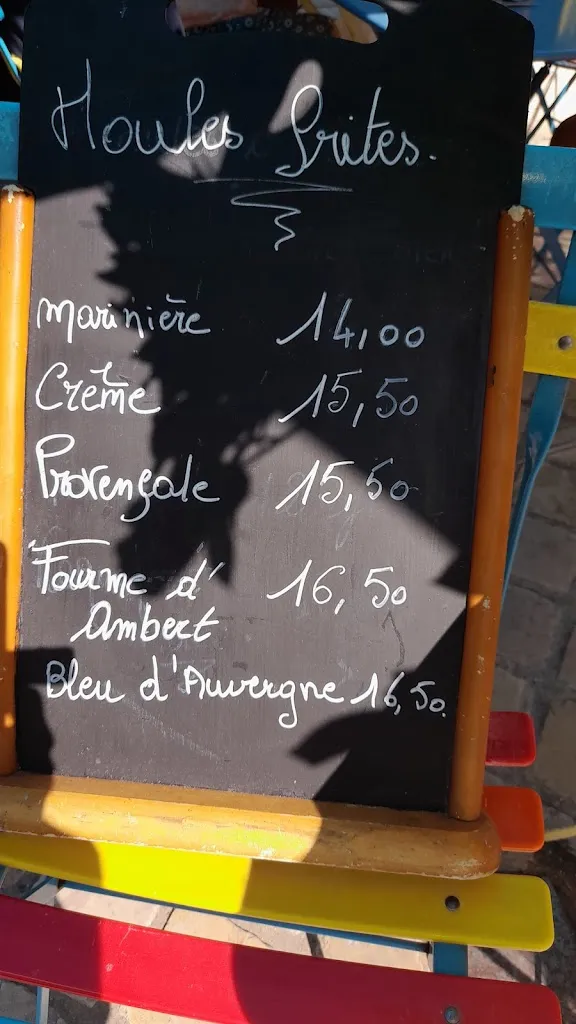 Moules frites.
Marinière 14,00
Crème 15,50
Provençale 15,50
Fourme d' 16,50
Ambert
Bleu d'Auvergne 16,50.